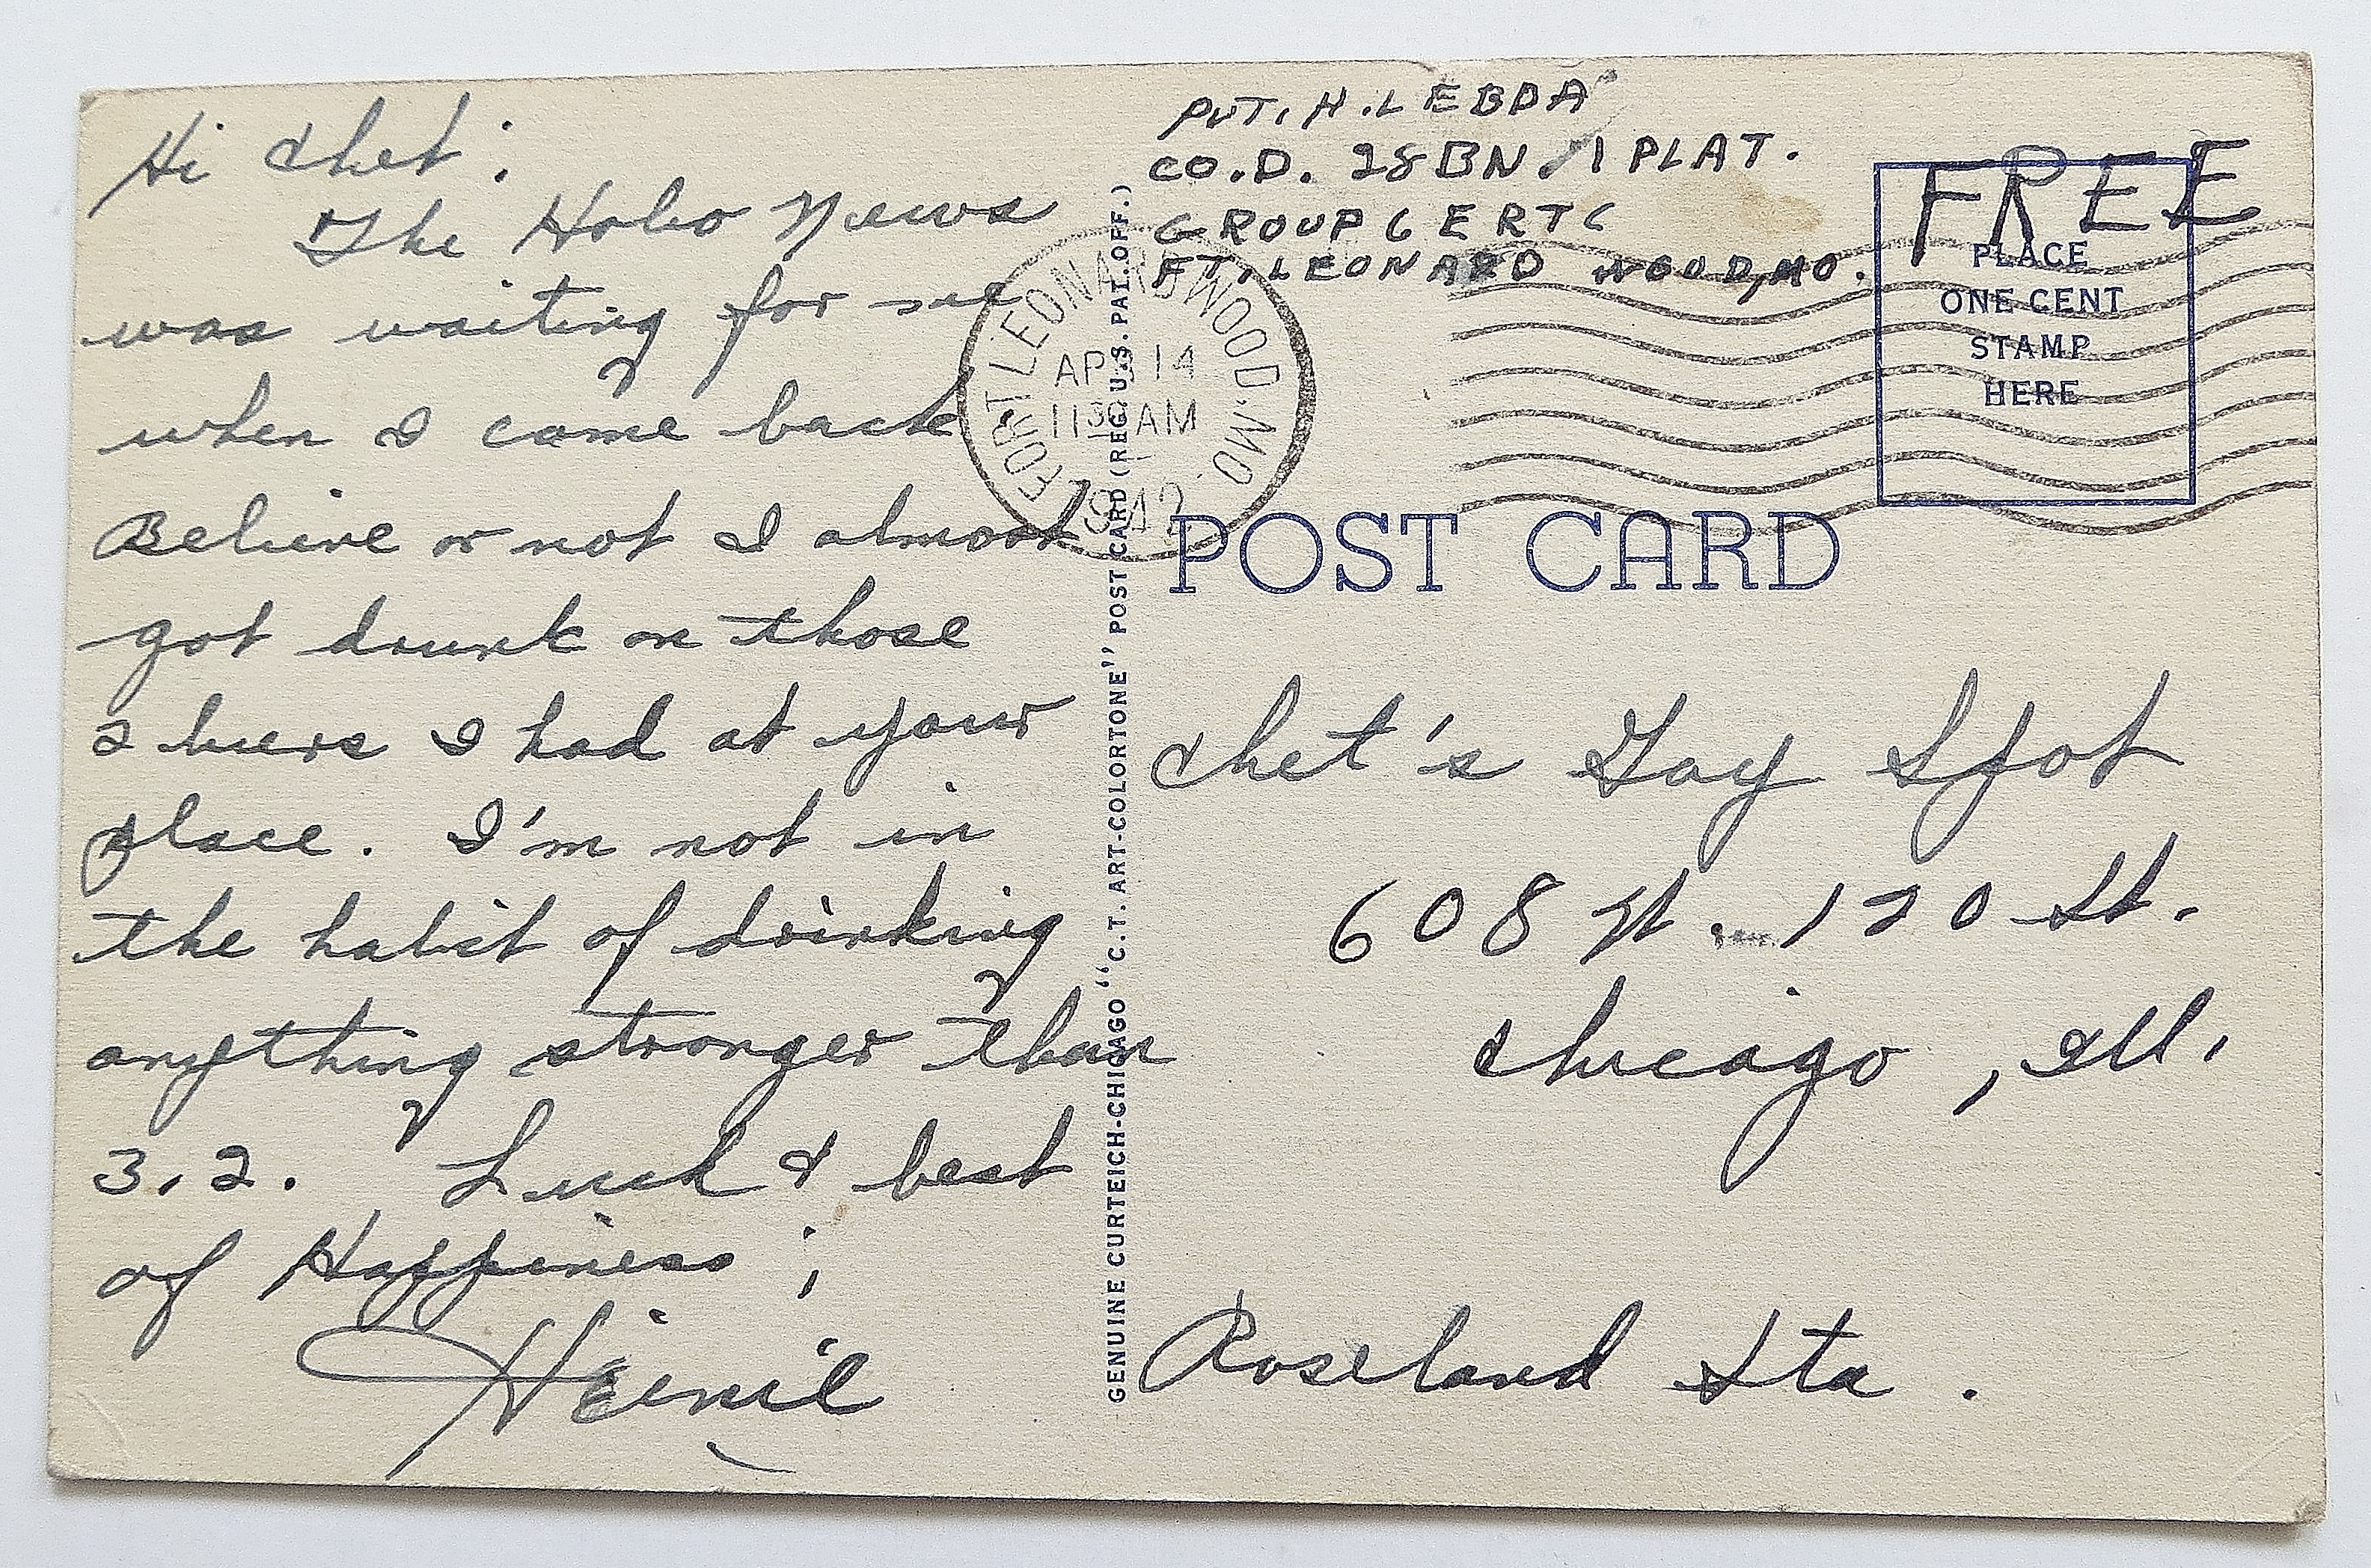 Hi Chet;
The Hobo News
was waiting for me
when I came back
Believe or not I almost
got drunk on those
2 beers I had at your
place. I'm not in
the habit of drinking
anything stronger than
3.2. Luck & best
of Happiness;
PVT. H. LEBDA
CO. D. 28 BN 1 PLAT.
GROUP 6 ERTC
FT. LEONARD WOOD, MO.
FREE
PLACE
ONE CENT
STAMP
HERE
FORT LEONARD WOOD, MO.
APR 14
1130 AM
1942
GENUINE CURTEICH-CHICAGO "C.T. ART-COLORTONE" POST CARD (REG. U.S. PAT. OFF.)
POST CARD
Chet's Gay Spot
608 W. 120 St.
Chicago, Ill.
Roseland Sta.